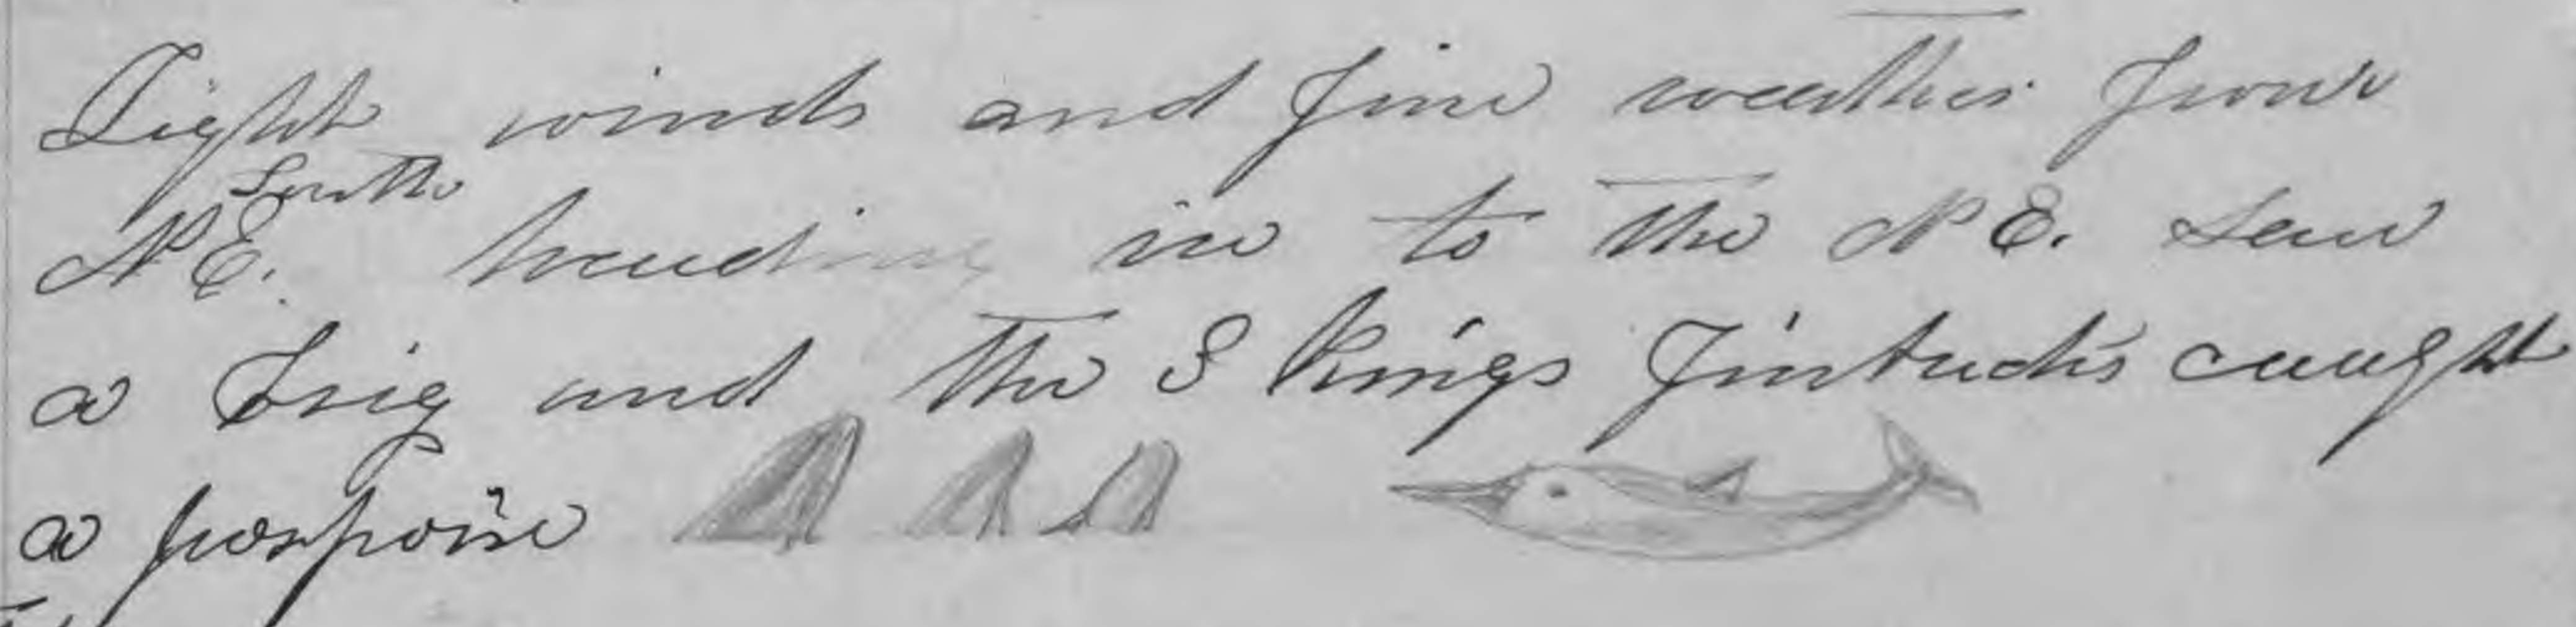 Light winds and fine weather from
South
N E. heading in to the N E. Saw
a brig and the 3 Kings caught
a porpoise